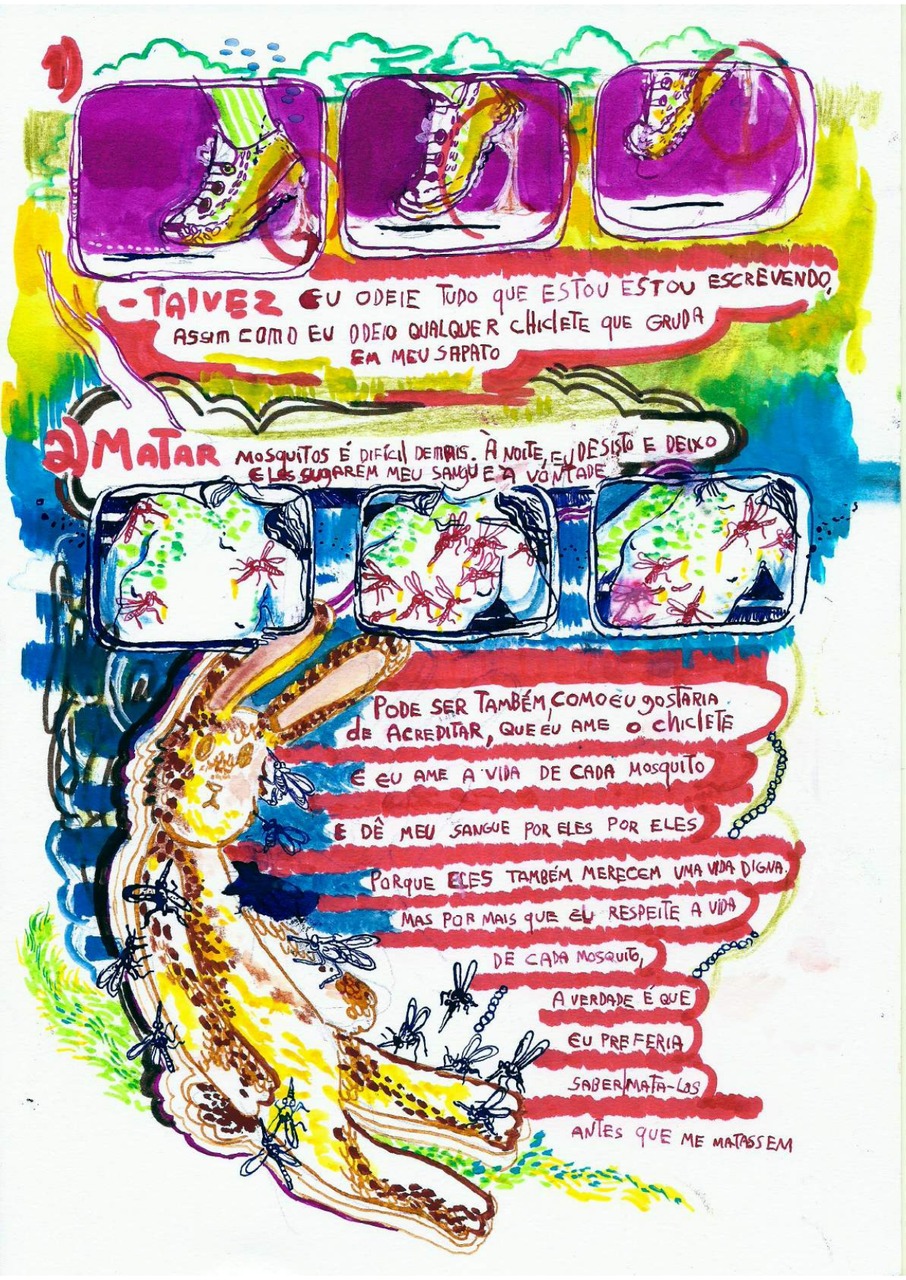 1)
- TALVEZ EU ODEIE TUDO QUE ESTOU ESTOU ESCREVENDO,
ASSIM COMO EU ODEIO QUALQUER CHICLETE QUE GRUDA
EM MEU SAPATO
2) MATAR MOSQUITOS É DIFÍCIL DEMAIS. À NOITE, EU DESISTO E DEIXO
ELES SUGAREM MEU SANGUE À VONTADE
PODE SER TAMBÉM, COMO EU GOSTARIA
DE ACREDITAR, QUE EU AME O CHICLETE
E EU AME A VIDA DE CADA MOSQUITO
E DÊ MEU SANGUE POR ELES POR ELES
PORQUE ELES TAMBÉM MERECEM UMA VIDA DIGNA.
MAS POR MAIS QUE EU RESPEITE A VIDA
DE CADA MOSQUITO,
A VERDADE É QUE
EU PREFERIA
SABER MATA-LOS
ANTES QUE ME MATASSEM